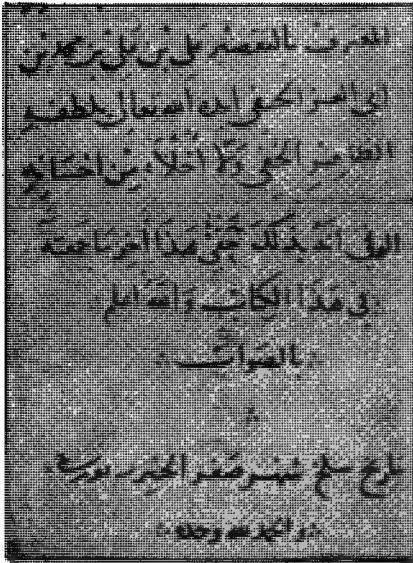 المعترف بالتقصير علي بن علي بن محمد بن
ابي العز الحنفي ايده الله تعالى بلطفه
الخفي ولا أخلاه من احسانه
الوفي انه بذلك حفي هذا آخر ما جمعته
في هذا الكتاب والله اعلم
بالصواب
تاريخ سلخ شهر صفر الخير
والحمد لله وحده